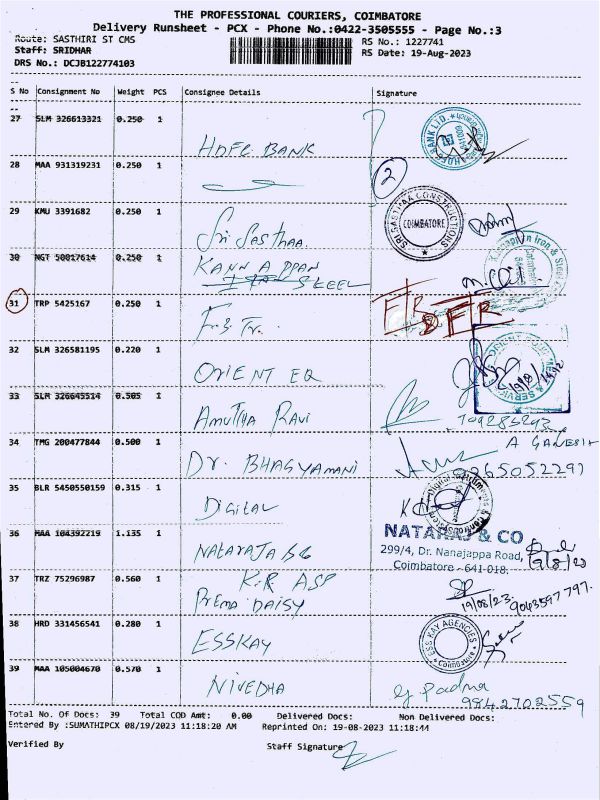 THE PROFESSIONAL COURIERS, COIMBATORE
Delivery Runsheet - PCX - Phone No.:0422-3505555 - Page No.:3
Route: SASTHIRI ST CMS RS No.: 1227741
Staff: SRIDHAR RS Date: 19-Aug-2023
DRS No.: DCJB122774103
S No Consignment No Weight PCS Consignee Details Signature
27 SLM 326613321 0.250 1
HDFC BANK
28 MAA 931319231 0.250 1
2
29 KMU 3391682 0.250 1
SRI SASTHAA CONSTRUCTIONS
COIMBATORE
Sri Sasthaa
30 NGT 50017614 0.250 1
KANNAPPAN
STEEL
31 TRP 5425167 0.250 1
32 SLM 326581195 0.220 1
ORIENT EQ
33 SLM 326645514 0.505 1
AMUTHA RAVI
34 TMG 200477844 0.500 1
A GANESH
Dr. BHAGYAMANI
35 BLR 5450550159 0.315 1
DIGITAL
36 MAA 104392219 1.135 1
NATARAJ & CO
299/4, Dr. Nanajappa Road,
Coimbatore - 641 018.
NATARAJA &
19/8/23
37 TRZ 75296987 0.560 1
K.R. ASP
PREMA DAISY
19/08/23
9043597797
38 HRD 331456541 0.280 1
ESS KAY AGENCIES
Coimbatore
ESSKAY
39 MAA 105004670 0.570 1
NIVEDHA
G. Padma
9842702559
Total No. Of Docs: 39 Total COD Amt: 0.00 Delivered Docs: Non Delivered Docs:
Entered By :SUMATHIPCX 08/19/2023 11:18:20 AM Reprinted On: 19-08-2023 11:18:44
Verified By Staff Signature